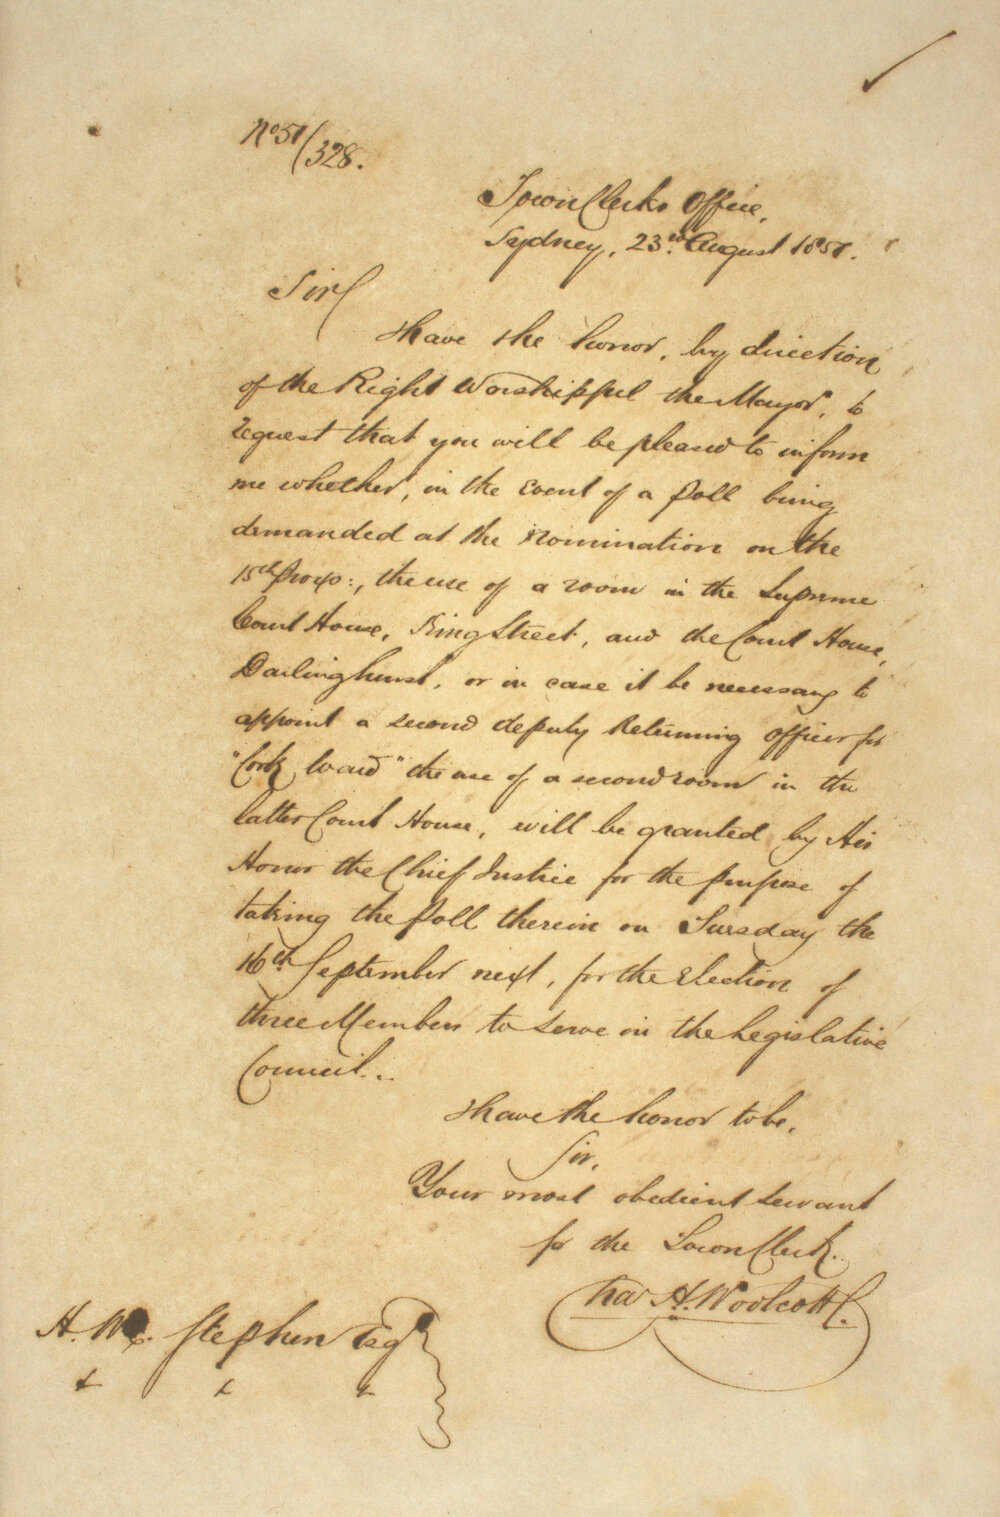 No 51/328.
Town Clerks Office,
Sydney, 23rd August 1851.
Sir
I have the honor, by direction
of the Right Worshipful the Mayor, to
request that you will be pleased to inform
me whether, in the event of a Poll being
demanded at the Nomination on the
15th Proxo:, the use of a room in the Supreme
Court House, King Street, and the Court House,
Darlinghurst, or in case it be necessary to
appoint a second deputy Returning Officer for
"Cook Ward" the use of a second room in the
latter Court House, will be granted by His
Honor the Chief Justice for the purpose of
taking the Poll therein on Tuesday the
16th September next, for the Election of
three Members to serve in the Legislative
Council...
I have the honor to be,
Sir,
Your most obedient servant
for the Town Clerk.
Chas H. Woolcott.
H. Stephen Esqr